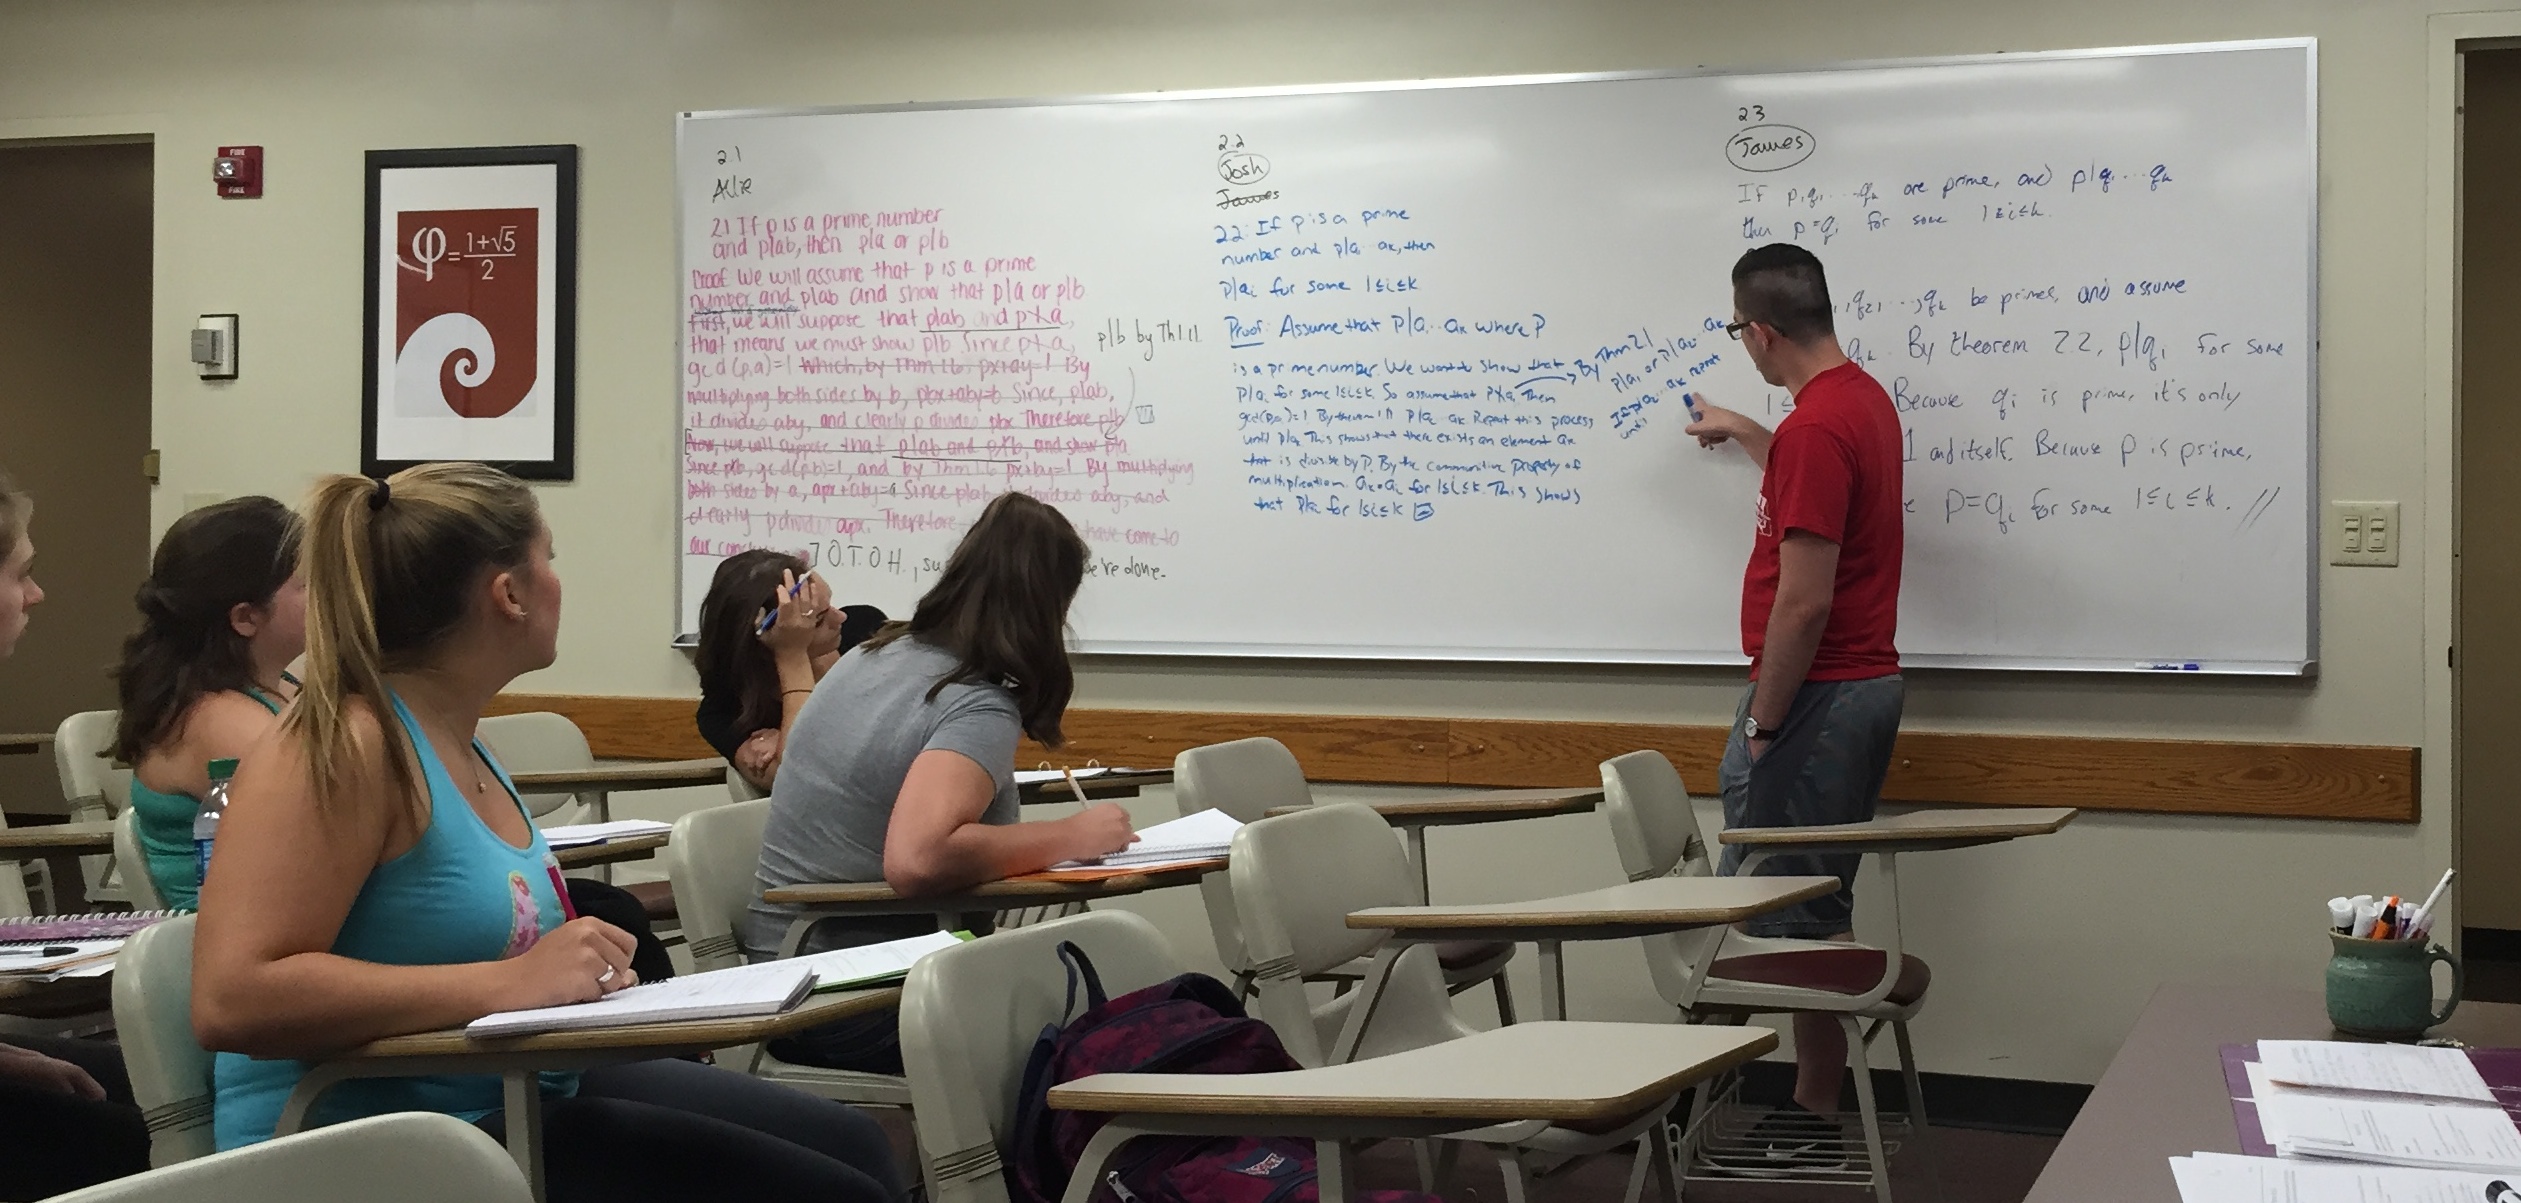 FIRE
FIRE
φ = 1+√5
2
2.1
Allie
2.1 If p is a prime number
and p|ab, then p|a or p|b
Proof: We will assume that p is a prime
number and p|ab and show that p|a or p|b
First, we will suppose that p|ab and p∤a,
that means we must show p|b. Since p∤a,
gcd(p,a)=1 which, by Thm 1.6, px+ay=1 By
multiplying both sides by b, pbx+aby=b Since, p|ab,
it divides aby, and clearly p divides pbx Therefore p|b
Now, we will suppose that p|ab and p∤b, and show p|a
Since p∤b, gcd(p,b)=1, and by Thm 1.6 px+by=1 By multiplying
both sides by a, apx+aby=a Since p|ab, it divides aby, and
clearly p divides apx. Therefore have come to
our
] O.T.O.H., su we're done.
p|b by Th 1.11
2.2
Josh
James
2.2: If p is a prime
number and p|a1 ak, then
p|ai for some 1≤i≤k
Proof: Assume that P|a1...ak where P
is a prime number. We want to show that
P|ai for some 1≤i≤k. So assume that P∤a1 Then
gcd(p,a1)=1 By theorem 1.11 P|a2 ak Repeat this process
until P|ak This shows that there exists an element ak
that is divisible by P. By the commutative property of
multiplication. ak=ai for 1≤i≤k. This shows
that P|ai for 1≤i≤k
By Thm 2.1
p|a1 or p|a2...ak
If p|a2...ak repeat
until
2.3
James
If p,q1...qk are prime, and p|q1...qk
then p=qi for some 1≤i≤k.
, q2, ..., qk be primes, and assume
qk. By theorem 2.2, p|qi for some
1≤ Because qi is prime, it's only
1 and itself. Because p is prime,
p=qi for some 1≤i≤k. //